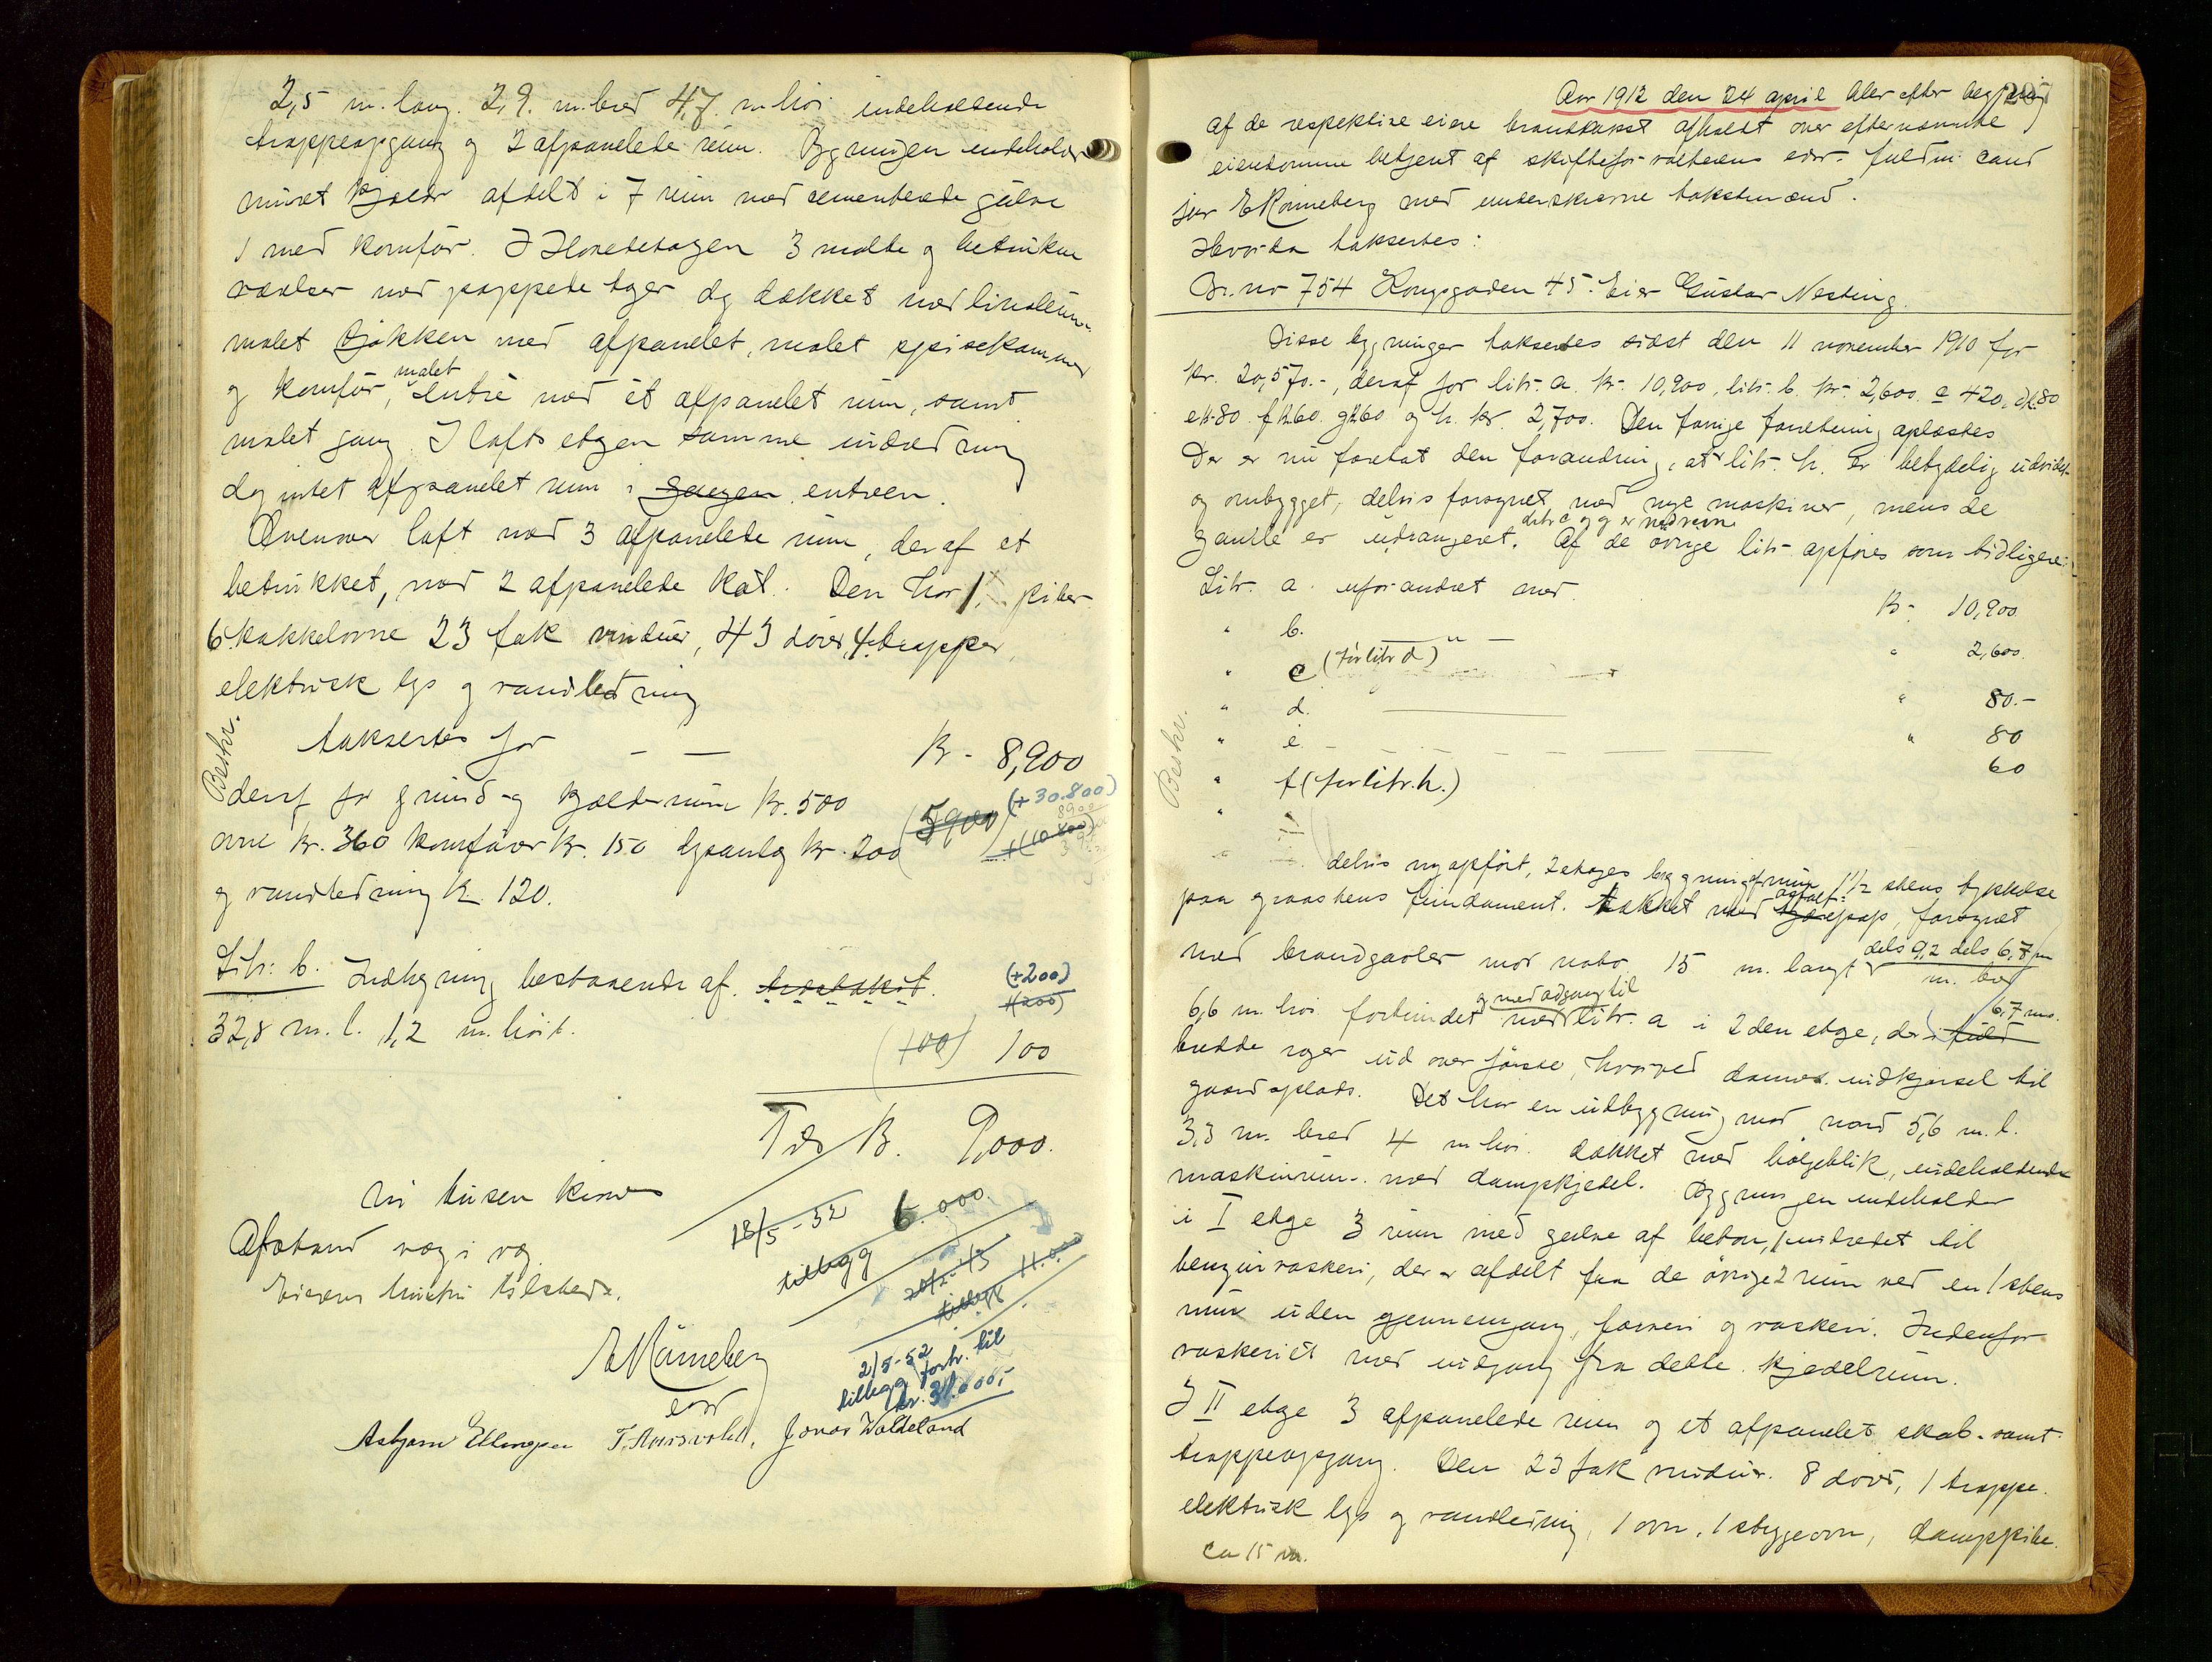 2,5 m. lang. 2,9. m. bred 4,7. m. høi indeholdende
trappeopgang og 2 afpanelede rum. Bygningen indeholder
muret kjelder afdelt i 7 rum med cementerede gulve
1 med komfur. I Hovedetagen 3 malte og betrukne
værelser med pappede tager og dækket med linoleum
malet kjøkken med afpanelet, malet spisekammer
og komfur, malet entré med et afpanelet rum, samt
malet gang. I lofts etagen samme indredning
dog intet afpanelet rum i gangen entreen.
Ovenover loft med 3 afpanelede rum, deraf et
betrukket, med 2 afpanelede kot. Den har 1 piber
6 kakkelovne 23 fak vinduer, 43 døre, 4 trapper,
elektrisk lys og vandledning
takseres for — — Kr. 8,900
Beskr.
deraf for grund og kjelderrum Kr. 500 (5900) (+30.800)
ovne Kr. 360 komfurer Kr. 150 lysanlæg Kr. 200
og vandledning Kr. 120.
Litr: b. Indhegning bestaaende af træstakit. (+200)
(200)
32,8 m. l. 1,2 m. høit. (100) 100
Tils Kr. 9,000.
18/5-32 6.000
tillegg
Afstand væg i væg
Eierens hustru tilstede.
11.000
tillegg
2/5-52
tillegg forh. til
E Rønneberg
edsv
Asbjørn Ellingsen Jonas Waldeland
297
Aar 1912 den 24 april blev efter begjæring
af de respektive eiere brandtakst afholdt over efternævnte
eiendomme betjent af skifteforvalterens edsv. fuldm. cand
jur E Rønneberg med underskrevne takstmænd.
Hvorda takseres:
Br. no 754 Kongsgaden 45. Eier Gustav Nesting.
Disse bygninger takseredes sidst den 11 november 1910 for
kr. 20,570.-, deraf for litr. a. kr. 10,900, litr. b. kr. 2,600. c 420, d kr. 80
e kr. 80. f kr. 60. g kr. 60 og h. kr. 2,700. Den forrige forretning oplæstes
Der er nu foretat den forandring, at litr. h. er betydelig utvidet
og ombygget, delvis forsynet med nye maskiner, mens de
gamle er udrangeret. litr c og g er nedrevne Af de øvrige litr. opføres som tidligere:
Litr. a. uforandret med Kr. 10,900.
" b. — " — " 2,600.
" c (før litr d) " 80.-
" d. " 80
" e. 60
" f (før litr. h.)
Beskr.
delvis nyopført, 2 etages bygning af mur 1 1/2 stens tykkelse
paa graastens fundament. Tækket med asfaltpap, forsynet
med brandgavler mod nabo. 15 m. langt dels 9,2 dels 6,7 m
m. bred
6,6 m. høi forbundet og med adgang til med litr. a i 2den etage, der i fuld 6,7 ms.
bredde rager ud over første, hvorved dannes indkjørsel til
gaardsplads. Det har en udbygning mod nord 5,6 m. l.
3,3 m. bred 4 m. høi. dækket med bølgeblik, indeholdende
maskinrum. med dampkjedel. Bygningen indeholder
i I etage 3 rum med gulve af beton, 1 indredet til
benzinvaskeri, der er afdelt fra de øvrige 2 rum ved en 1 stens
mur uden gjennemgang, farveri og vaskeri. Indenfor
vaskeriet med indgang fra dette kjedelrum.
I II etage 3 afpanelede rum og et afpanelet skab samt
trappeopgang. Den 23 fak vinduer. 8 døre, 1 trappe.
elektrisk lys og vandledning, 1 ovn, 1 strygeovn, damppibe.
ca 15 m.